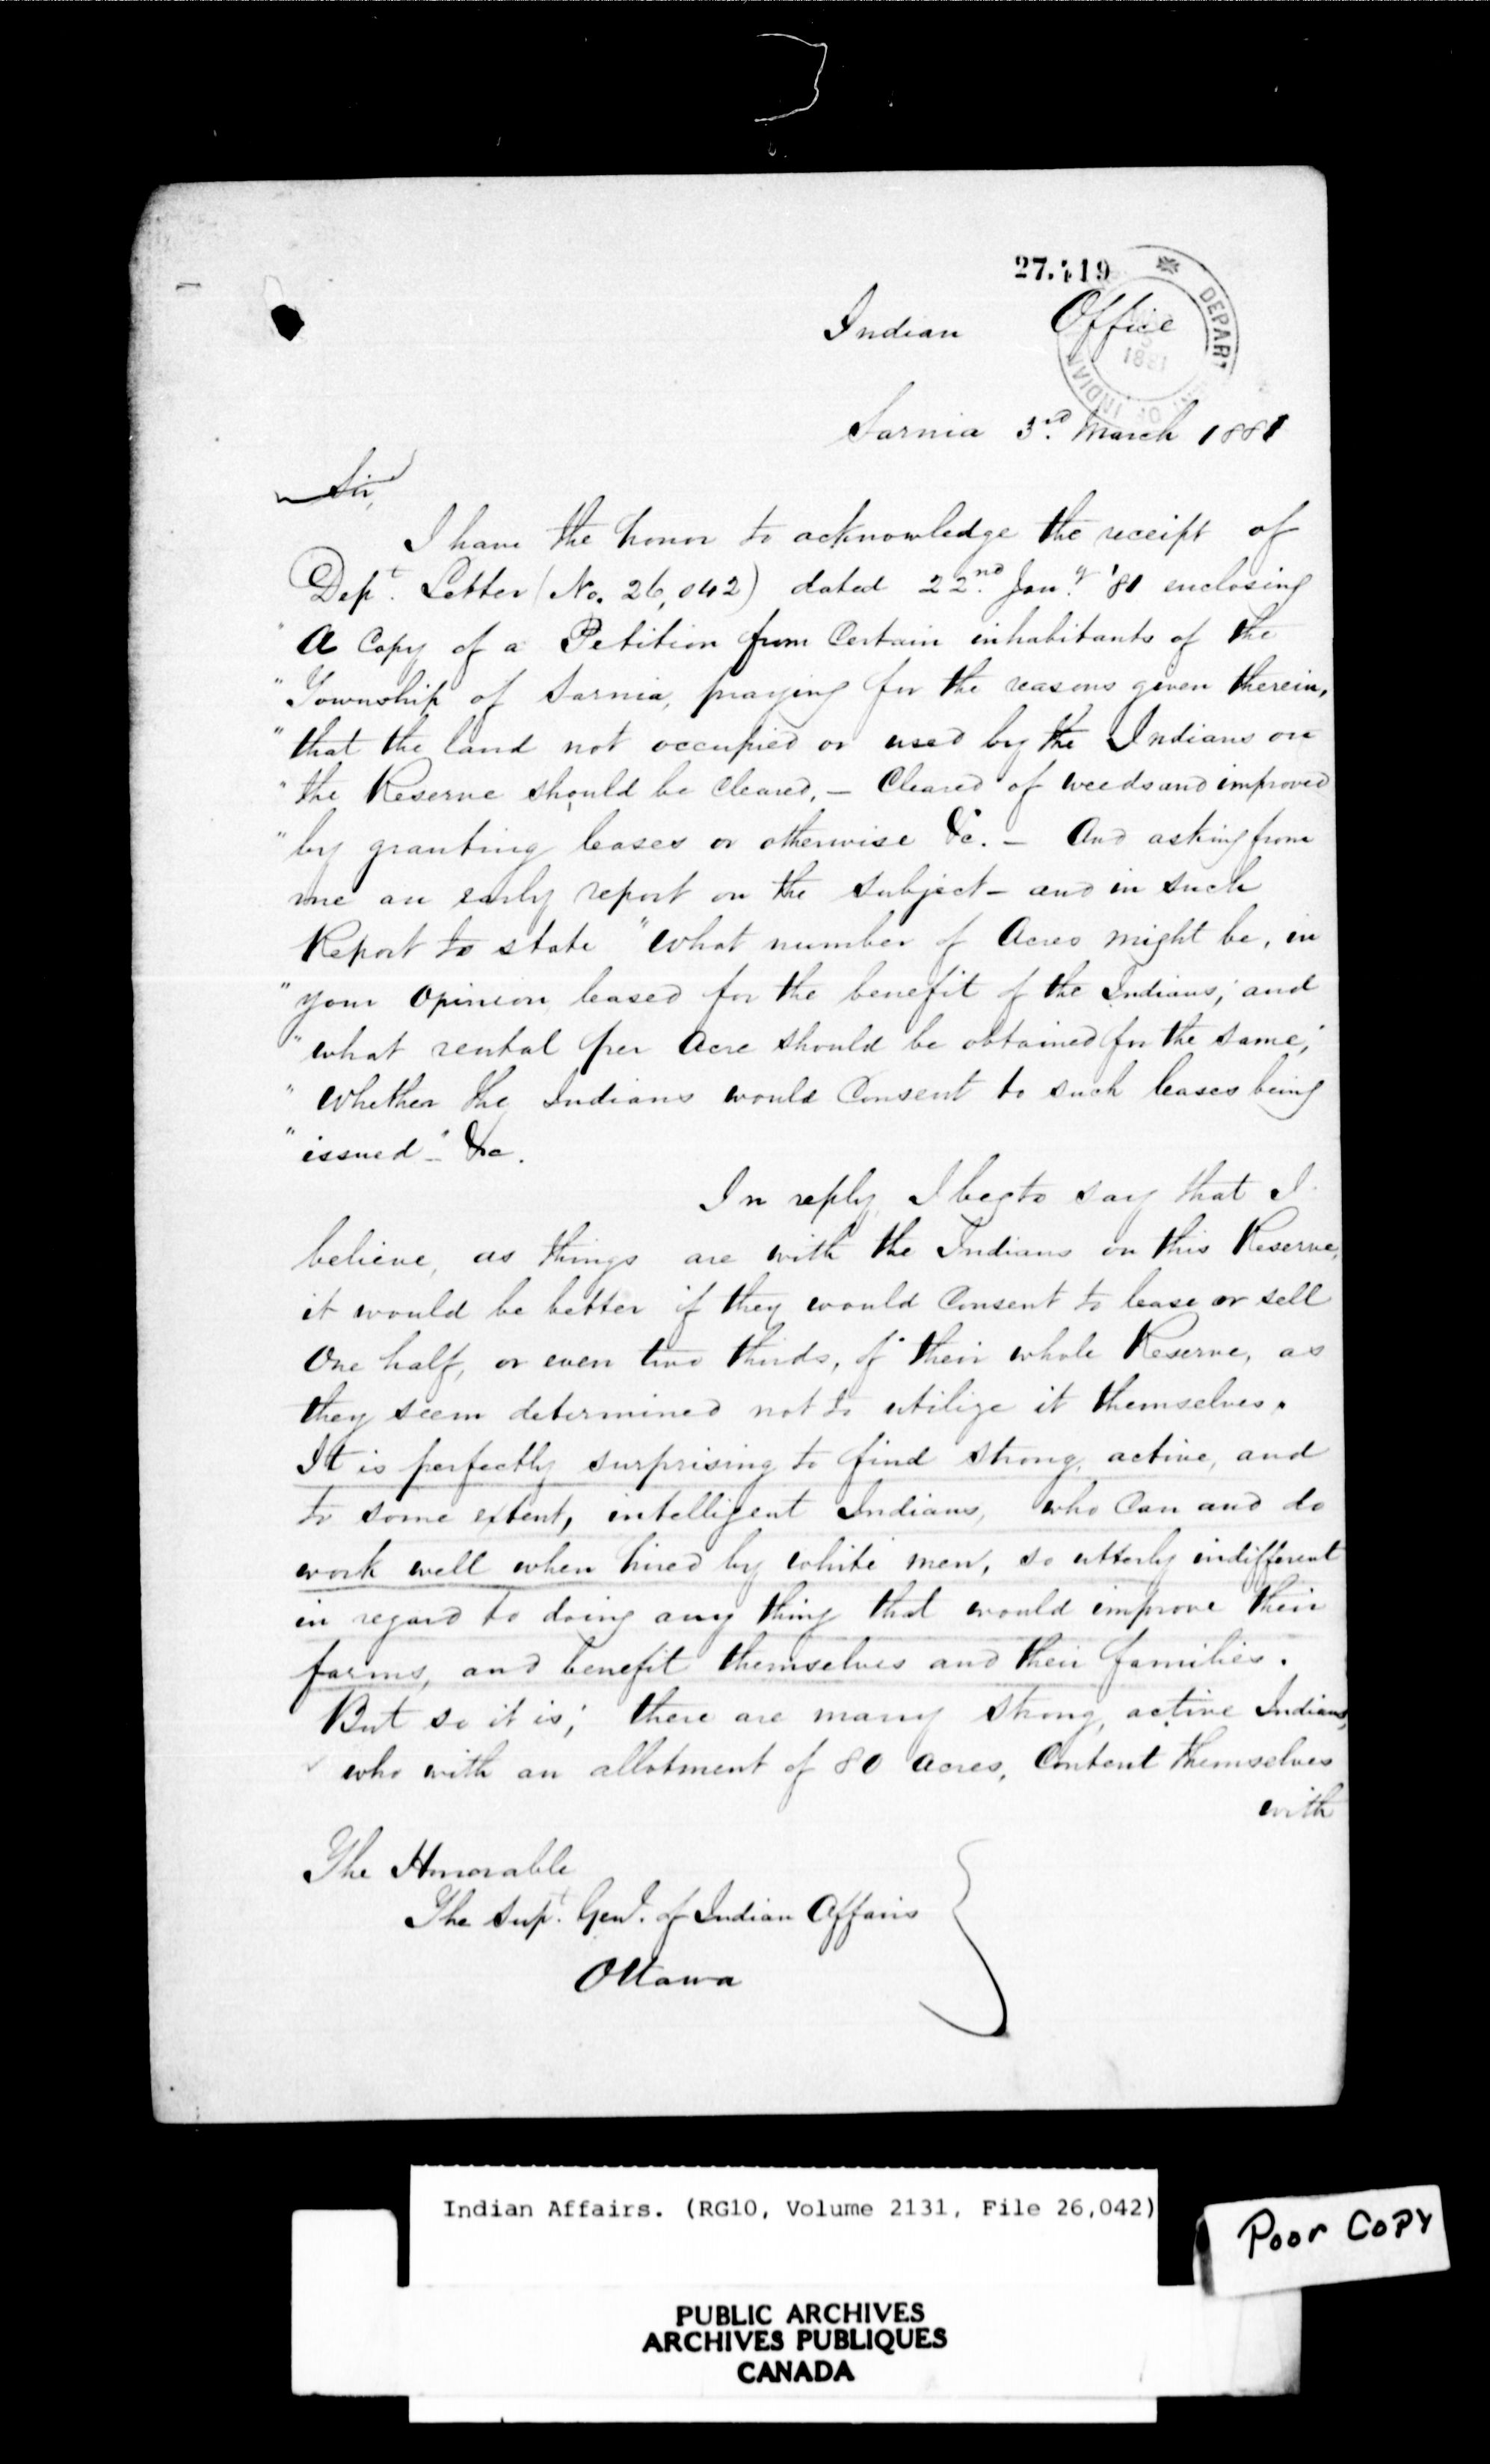 27.119
DEPART
OF INDIAN
1881
Indian Office
Sarnia 3rd. March 1881
Sir,
I have the honor to acknowledge the receipt of
Dept. Letter (No. 26,042) dated 22nd. Jany. '81 enclosing
" A Copy of a Petition from Certain inhabitants of the
" Township of Sarnia, praying for the reasons given therein,
" that the land not occupied or used by the Indians on
" the Reserve should be Cleared, — Cleared of weeds and improved
" by granting leases or otherwise &c. — And asking from
me an early report on the subject — and in such
Report to state "What number of Acres might be, in
" your Opinion leased for the benefit of the Indians; and
" what rental per Acre should be obtained for the same;
" Whether the Indians would Consent to such leases being
" issued" — &c.
In reply, I beg to say that I
believe, as things are with the Indians on this Reserve,
it would be better if they would Consent to lease or sell
One half, or even two thirds, of their whole Reserve, as
they seem determined not to utilize it themselves.
It is perfectly surprising to find strong, active, and
to some extent, intelligent Indians, who Can and do
work well when hired by white men, so utterly indifferent
in regard to doing any thing that would improve their
farms, and benefit themselves and their families.
But so it is; there are many strong, active Indians,
who with an allotment of 80 Acres, Content themselves
with
The Honorable
The Supt. Genl. of Indian Affairs
Ottawa
Indian Affairs. (RG10, Volume 2131, File 26,042)
Poor Copy
PUBLIC ARCHIVES
ARCHIVES PUBLIQUES
CANADA